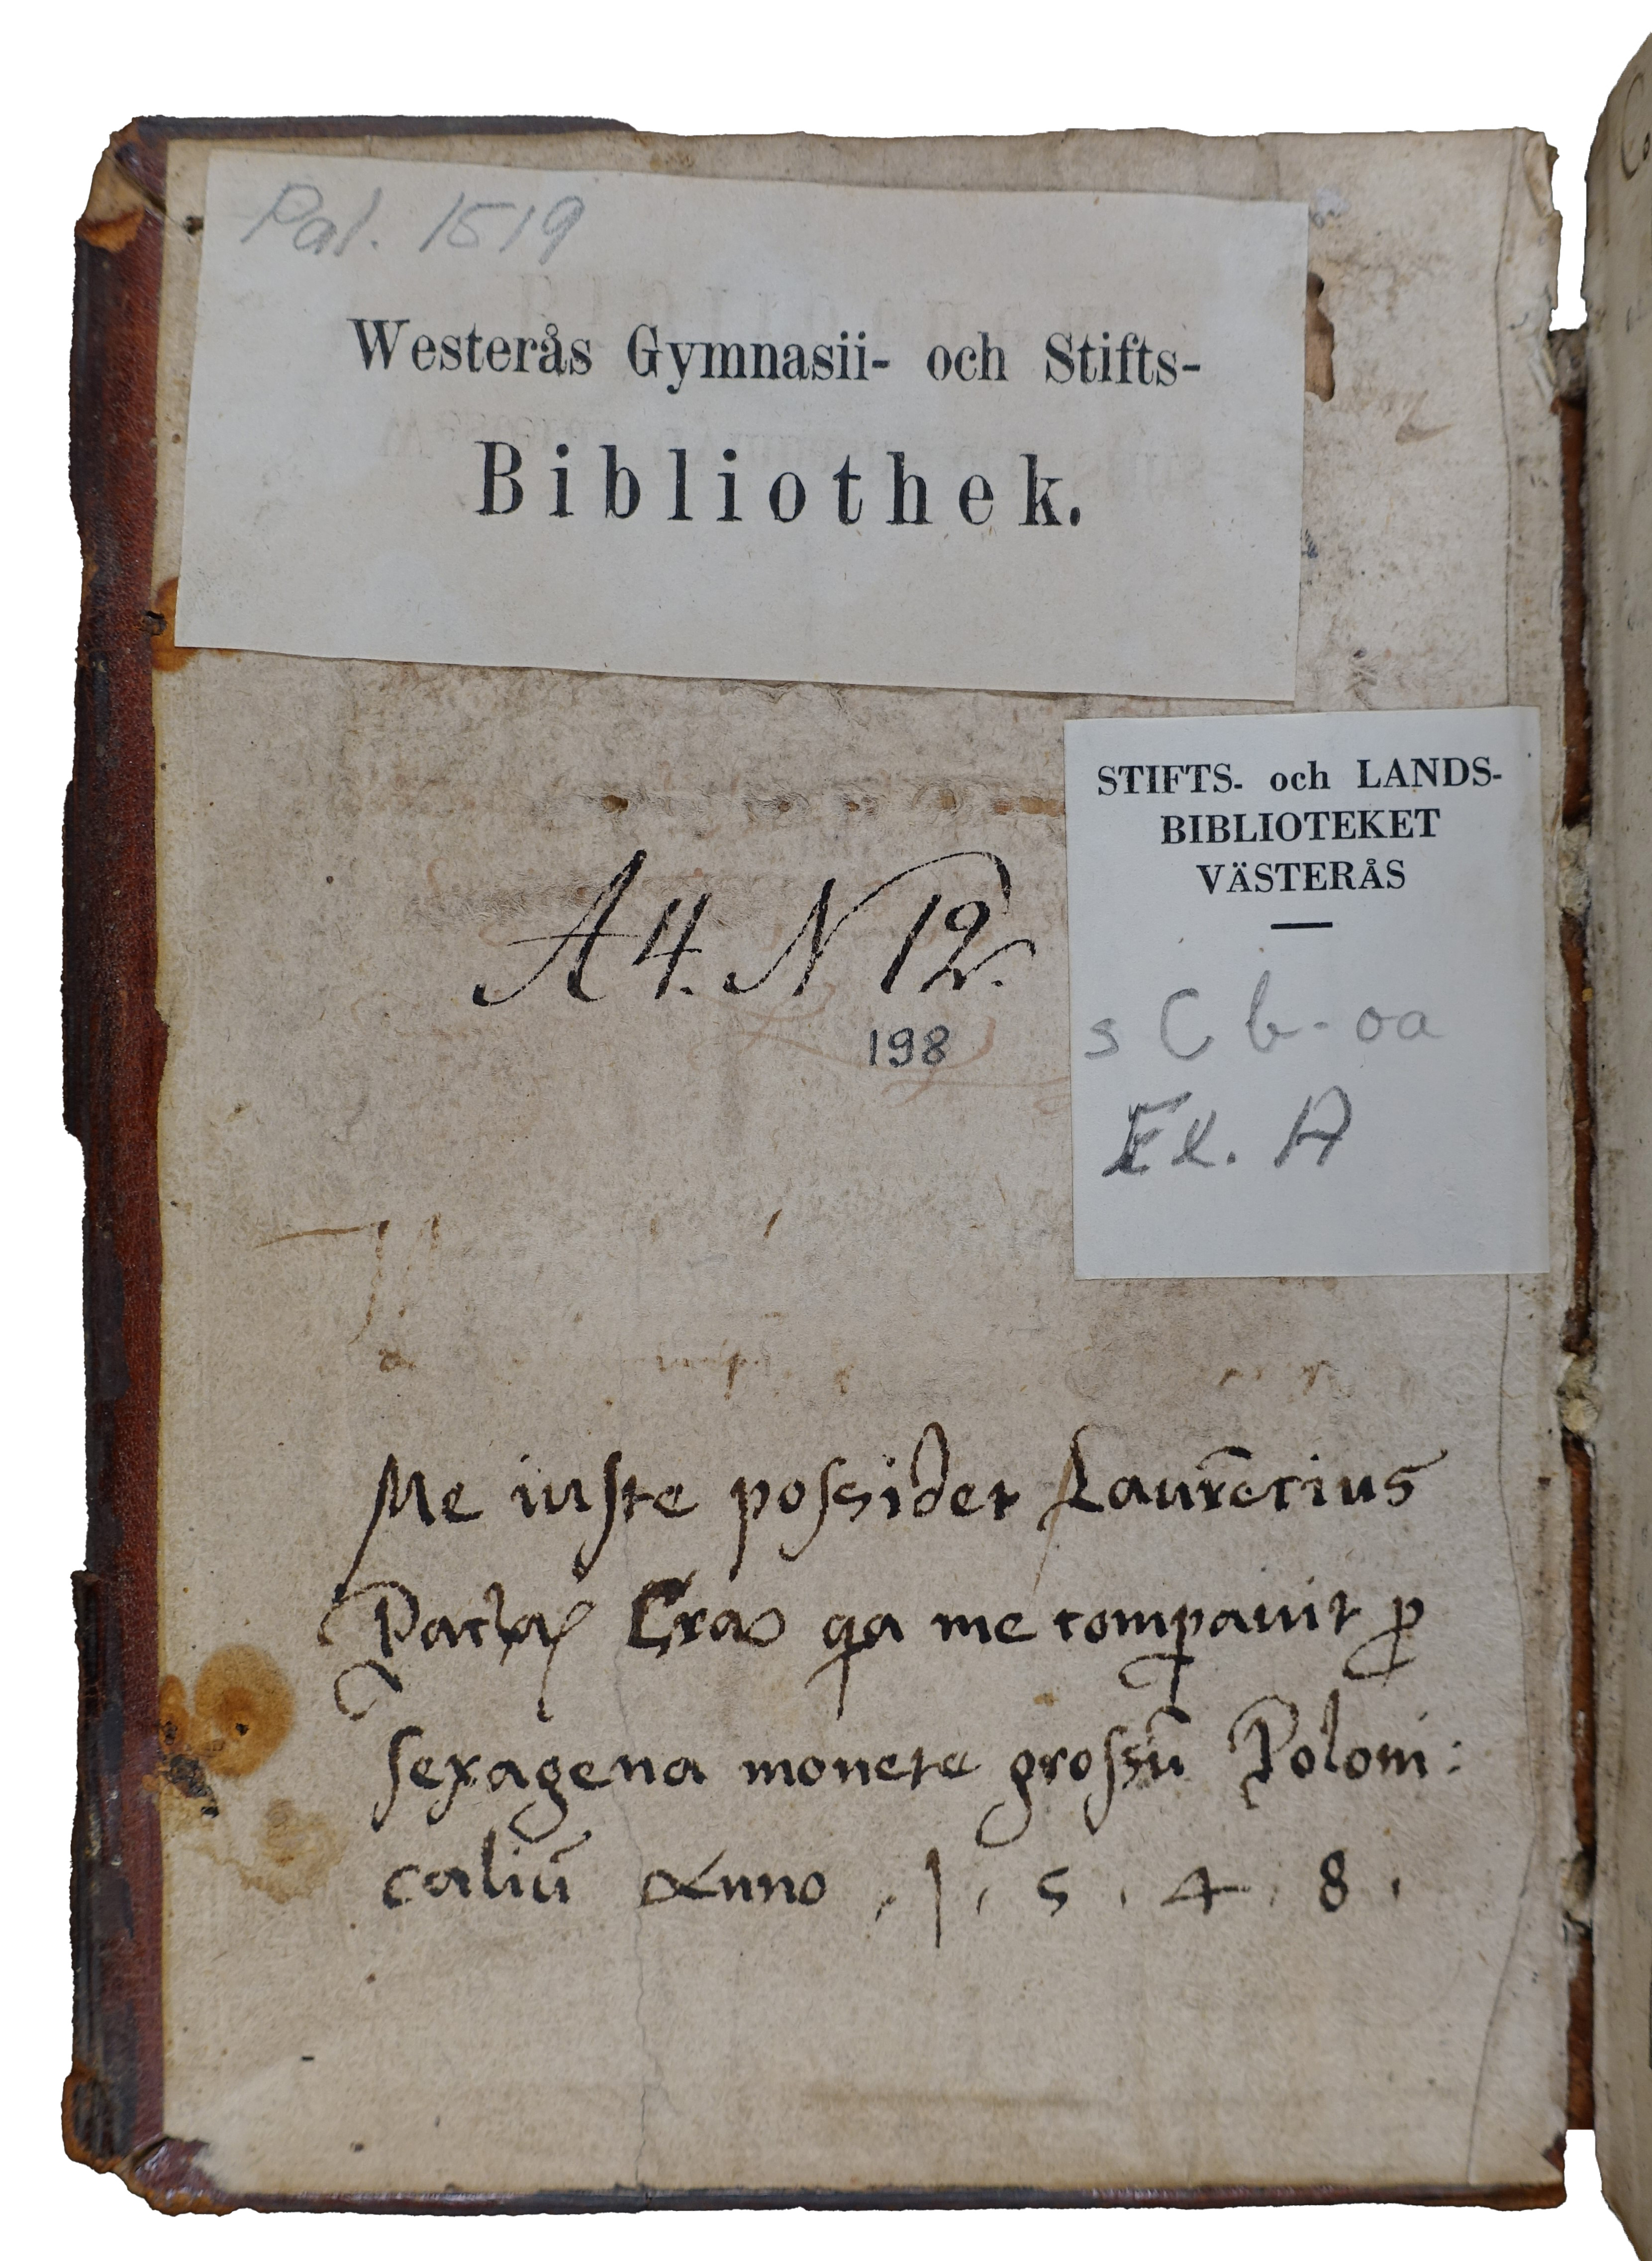 Pal. 1519
Westerås Gymnasii- och Stifts-
Bibliothek.
STIFTS- och LANDS-
BIBLIOTEKET
VÄSTERÅS
s C b-oa
Ex. A
A 4. N 12.
198
Me iuste possidet Laurētius
qa me compauit p
sexagena monete grossū Poloni:
caliū Anno . 1 . 5 . 4 . 8 .